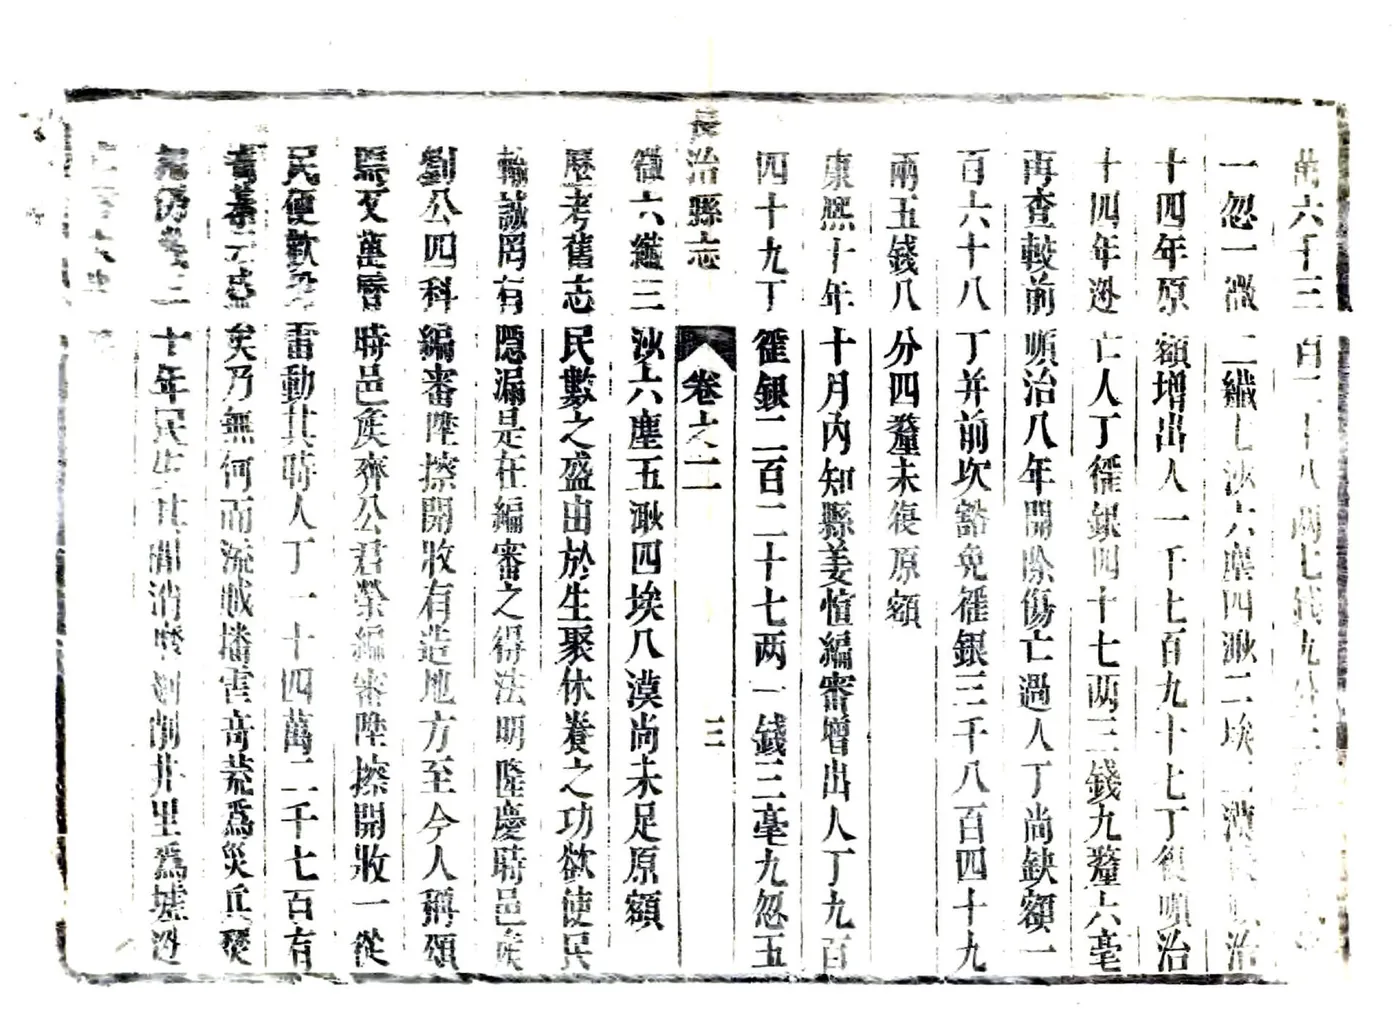 萬六千三百二十八兩七錢九分三
一忽一微二纖七沙六塵四溦二埃二漠順治
十四年原額增出人一千七百九十七丁復順治
十四年逃亡人丁徭銀四十七两三錢九釐六毫
再查較前順治八年開除傷亡過人丁尚缺額一
百六十八丁并前次豁免徭銀三千八百四十九
兩五錢八分四釐未復原額
康熙十年十月內知縣姜愃編審增出人丁九百
四十九丁徭銀二百二十七两一錢三毫九忽五
長治縣志 卷之二 三
微六纖三沙六塵五溦四埃八漠尚未足原額
歷考舊志民數之盛由於生聚休養之功欲使民
輸誠罔有隱漏是在編審之得法明隆慶時邑侯
劉公四科編審陞擦開收有造地方至今人稱頌
焉及萬曆時邑矦齊公君榮編審陞擦開收一從
民便歡聲雷動其時人丁一十四萬二千七百有
奇綦云盛矣乃無何而流賊播害奇荒為災兵燹
十年民生其間消磨剝削井里爲墟逃